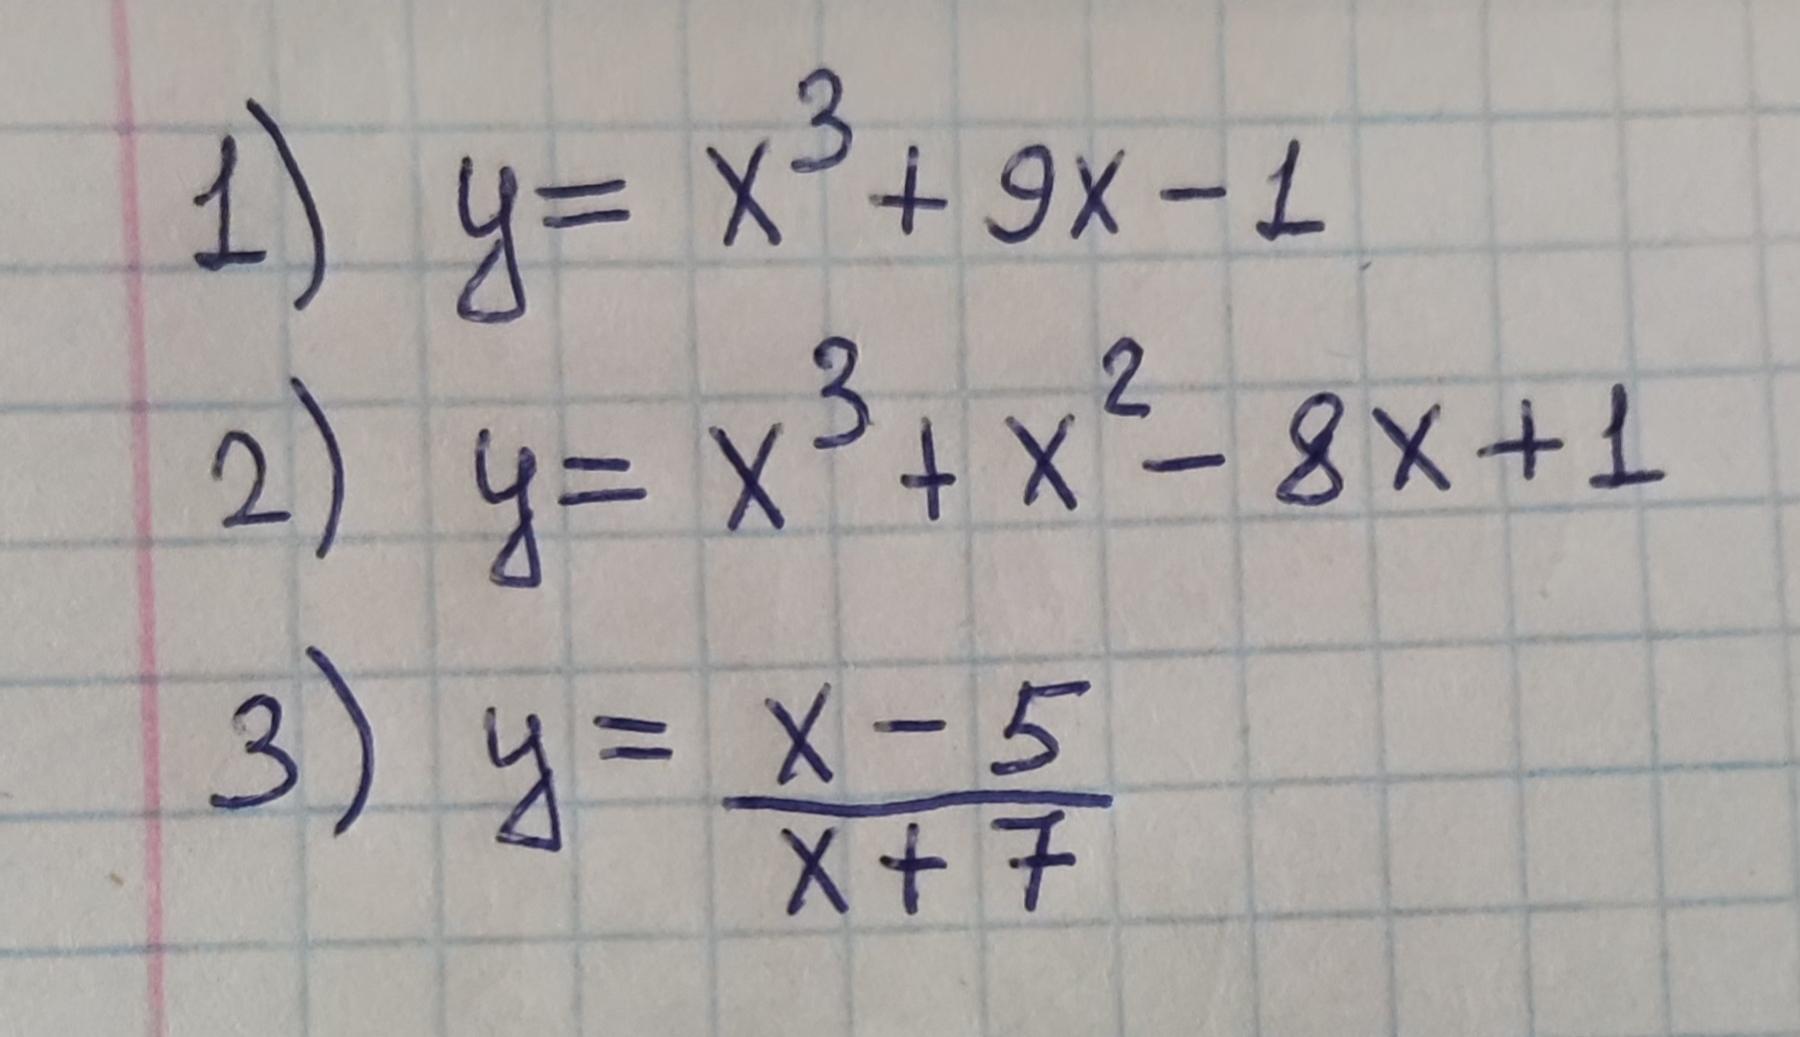 1) y = x³ + 9x - 1
2) y = x³ + x² - 8x + 1
3) y = x - 5
x + 7